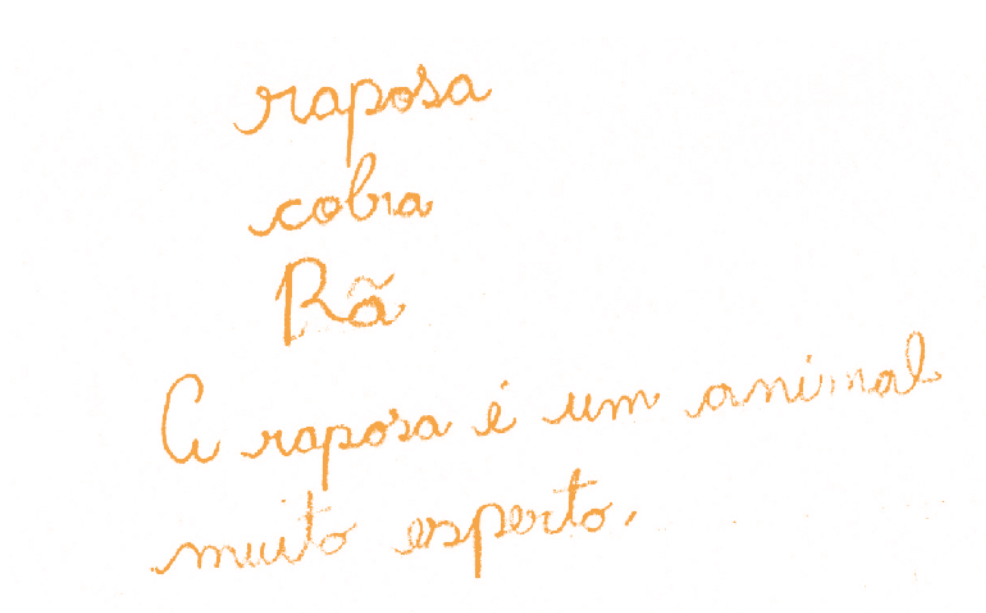 raposa
cobra
Rã
A raposa é um animal
muito esperto.